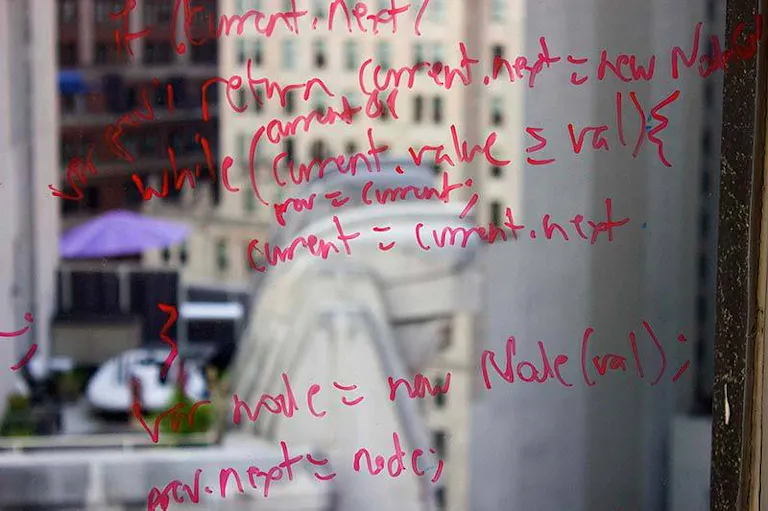 if (current.next)
return current.next = new Node
var prev;
current or
while (current.value ≤ val) {
prev = current;
current = current.next
}
var node = new Node(val);
prev.next = node;